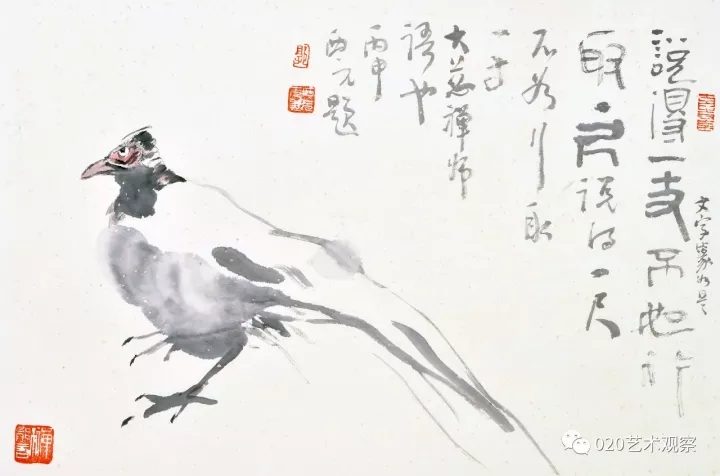 說得一丈不如行
取尺说得一尺
不如行取
一寸
大慈禪師
語也
丙申
西元題
020艺术观察